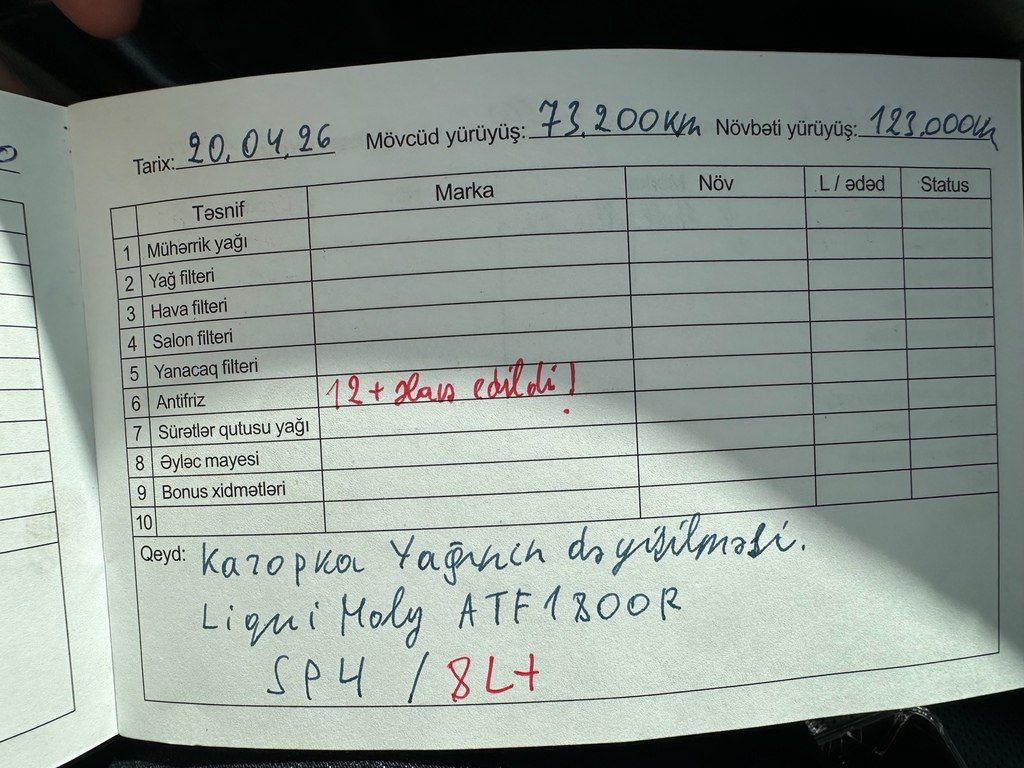 Tarix: 20.04.26 Mövcüd yürüyüş: 73.200км Növbəti yürüyüş: 123.000км
Təsnif Marka Növ L / ədəd Status
1 Mühərrik yağı
2 Yağ filteri
3 Hava filteri
4 Salon filteri
5 Yanacaq filteri
6 Antifriz 12+ əlavə edildi!
7 Sürətlər qutusu yağı
8 Əyləc mayesi
9 Bonus xidmətləri
10
Qeyd: Каropка Yağının dəyişilməsi.
Liqui Moly ATF 1800R
SP4 / 8L+